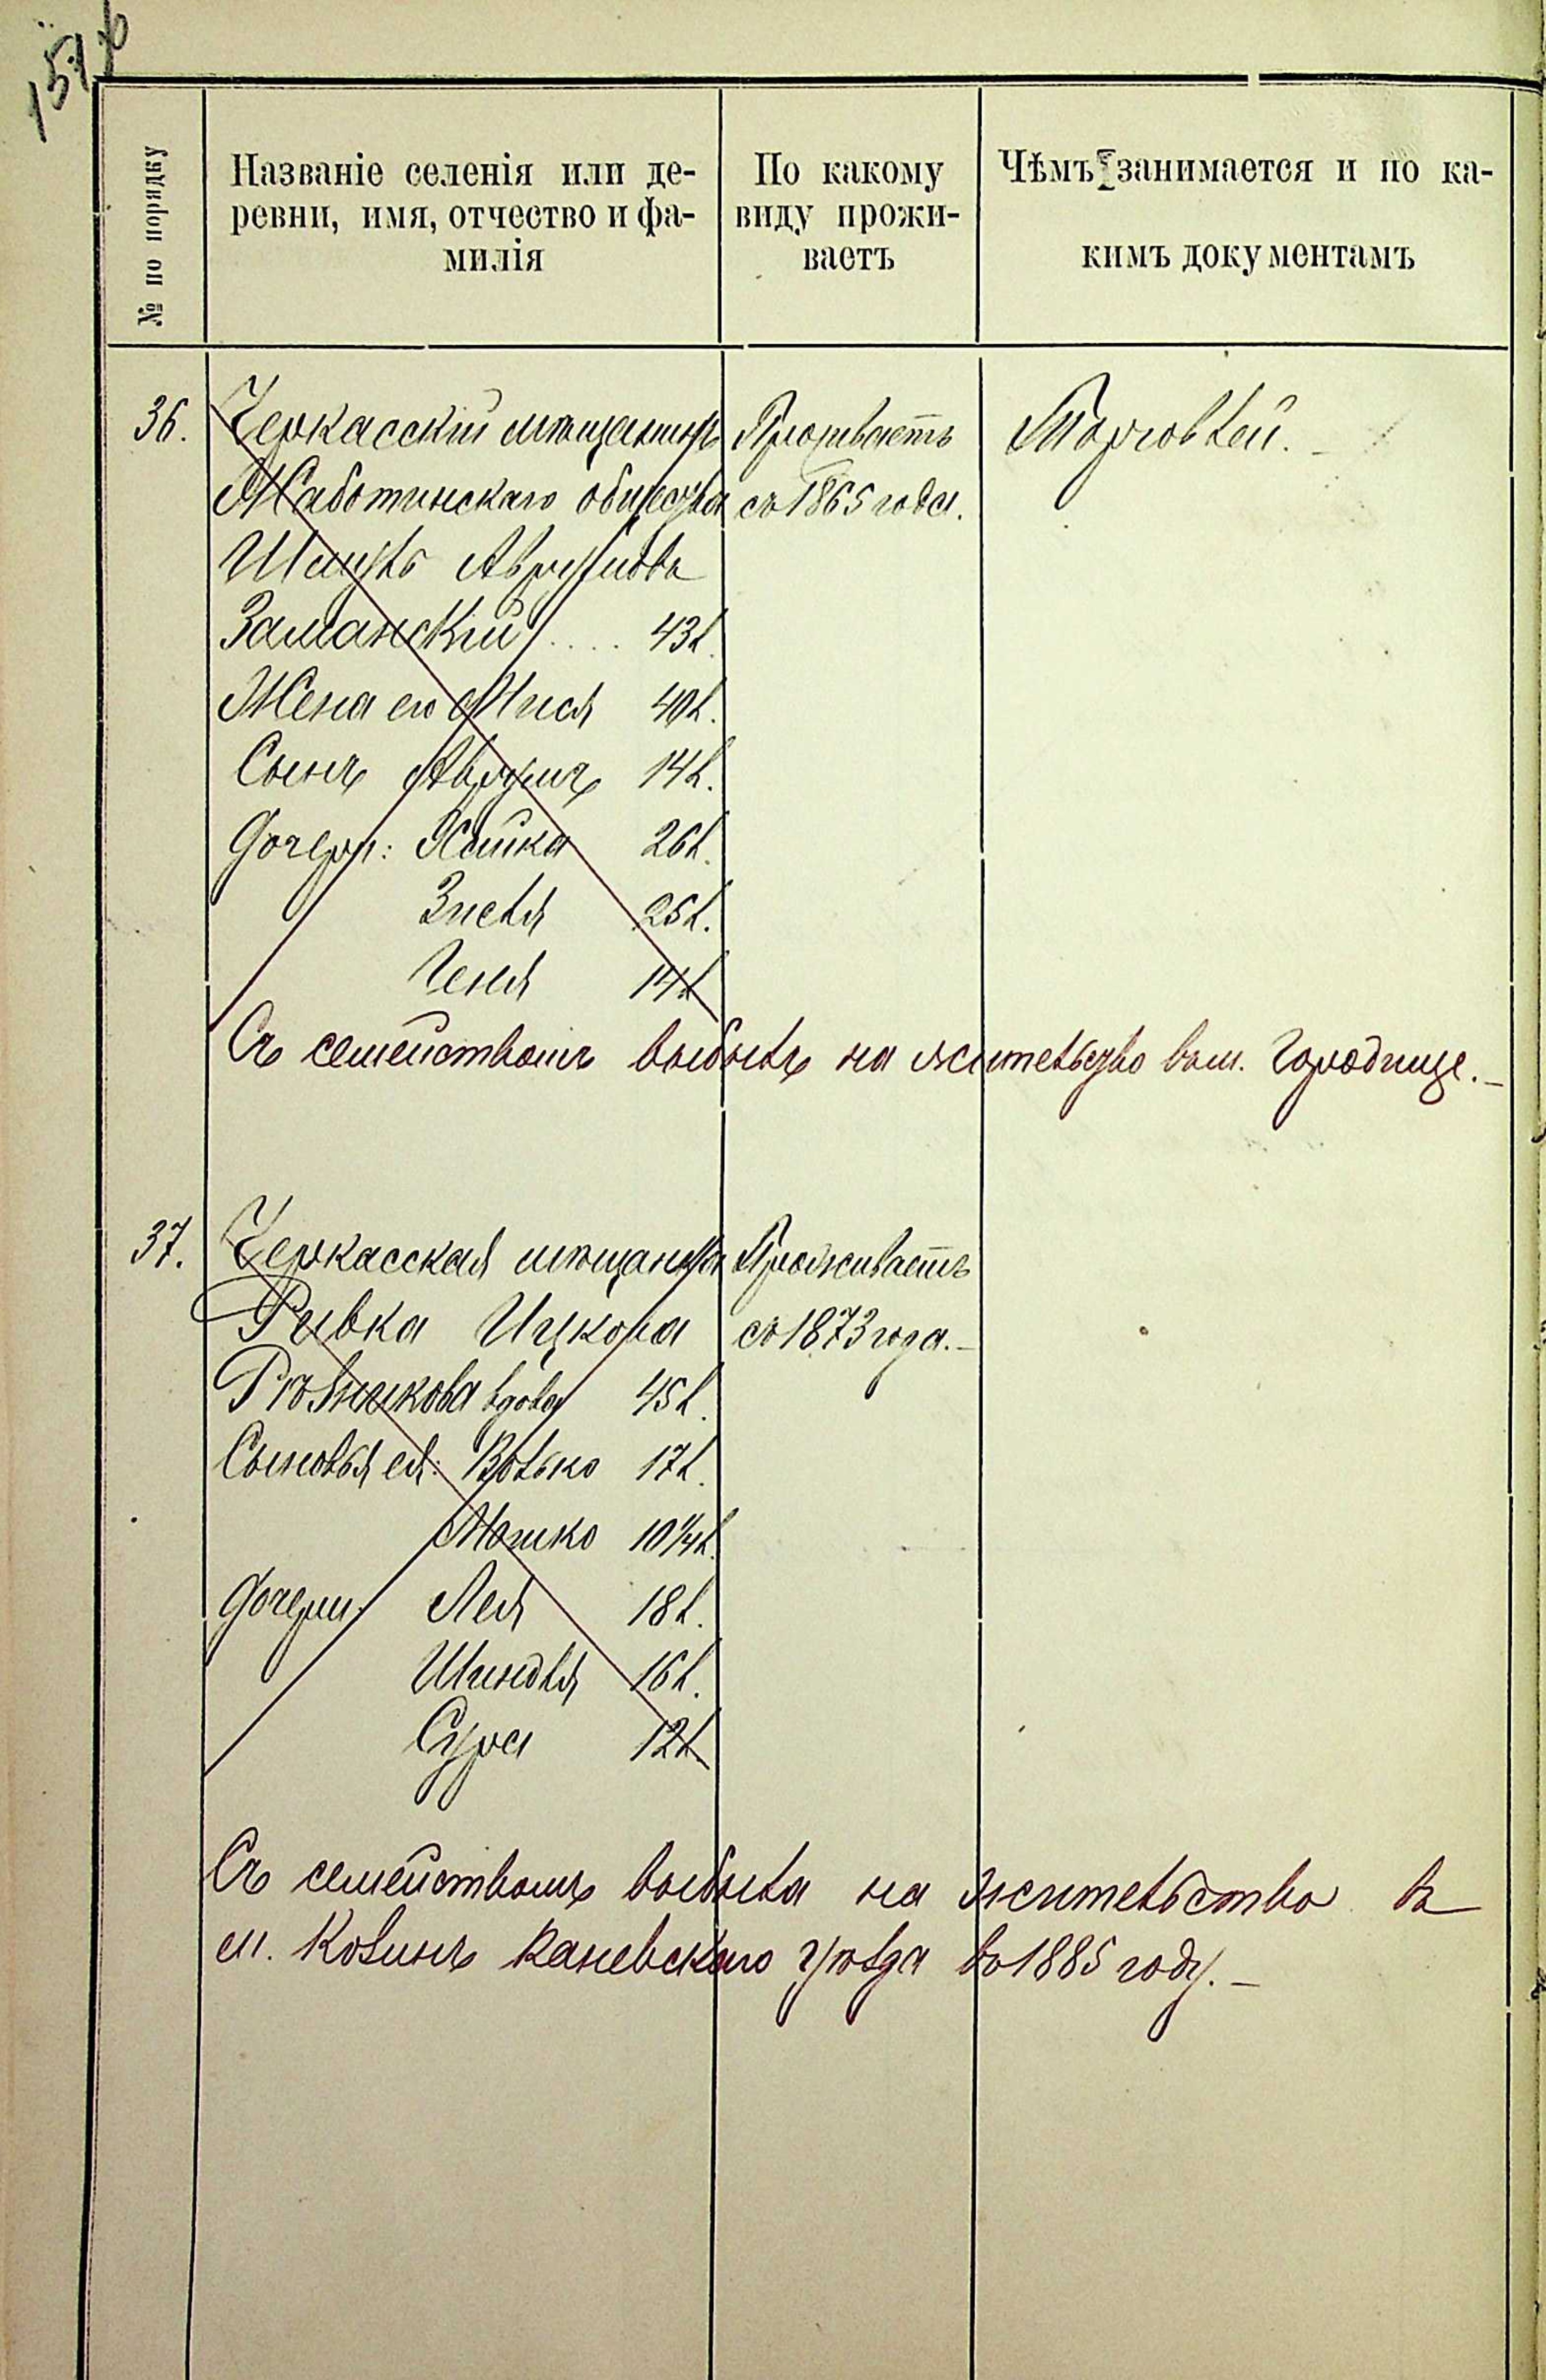 № по порядку
Названіе селенія или де-
ревни, имя, отчество и фа-
милія
По какому
виду прожи-
ваетъ
Чѣмъ занимается и по ка-
кимъ документамъ
36.
Черкасскій мѣщанинъ
Жаботинскаго общества
Аврумовъ
Заманскій .... 43 л.
Жена его 40 л.
Сынъ Аврумъ 14 л.
Дочери: Хайка 26 л.
Зисля 25 л.
Геня 14 л.
Проживаетъ
съ 1865 года.
Торговлей. –
Съ семействомъ выбылъ на жительство въ м. Городище. –
37.
Черкасская мѣщанка
Ривка Ицкова
вдова 45 л.
Сыновья ея: Волько 17 л.
Мошко 10 1/4 л.
Дочери: Лея 18 л.
Шиндля 16 л.
Сура 12 л.
Проживаетъ
съ 1873 года. –
Съ семействомъ выбыла на жительство въ
м. Козинъ Каневскаго уѣзда въ 1885 году. –